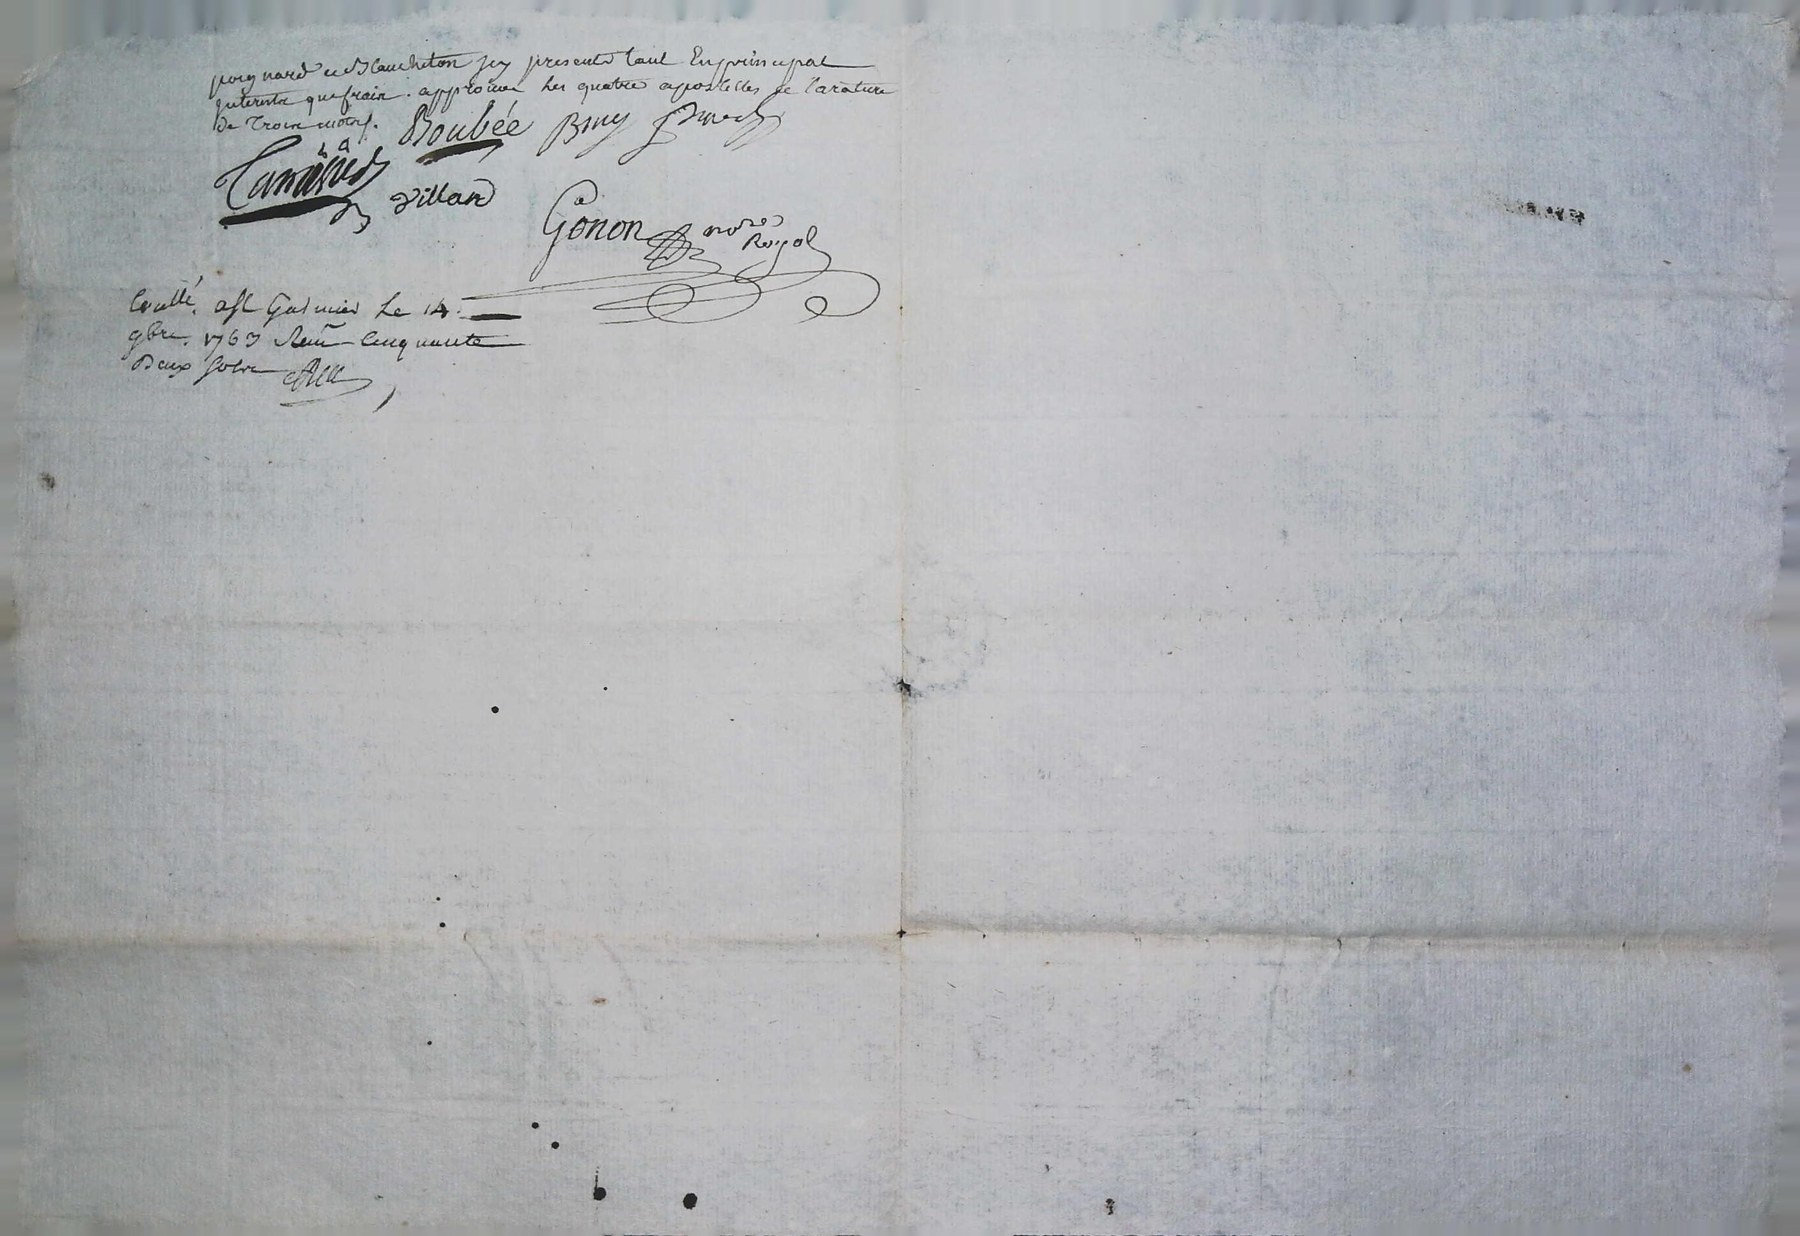 poignard et Blancheton jcy presents tant En principal
Interests que frais. approuvé les quatre apostilles et la rature
De trois mots.
Boubée Bruy
Villard
Gonon nore Royal
Conllé. a St Galmier Le 14
9bre. 1763 Reçu Cinquante
Deux sols